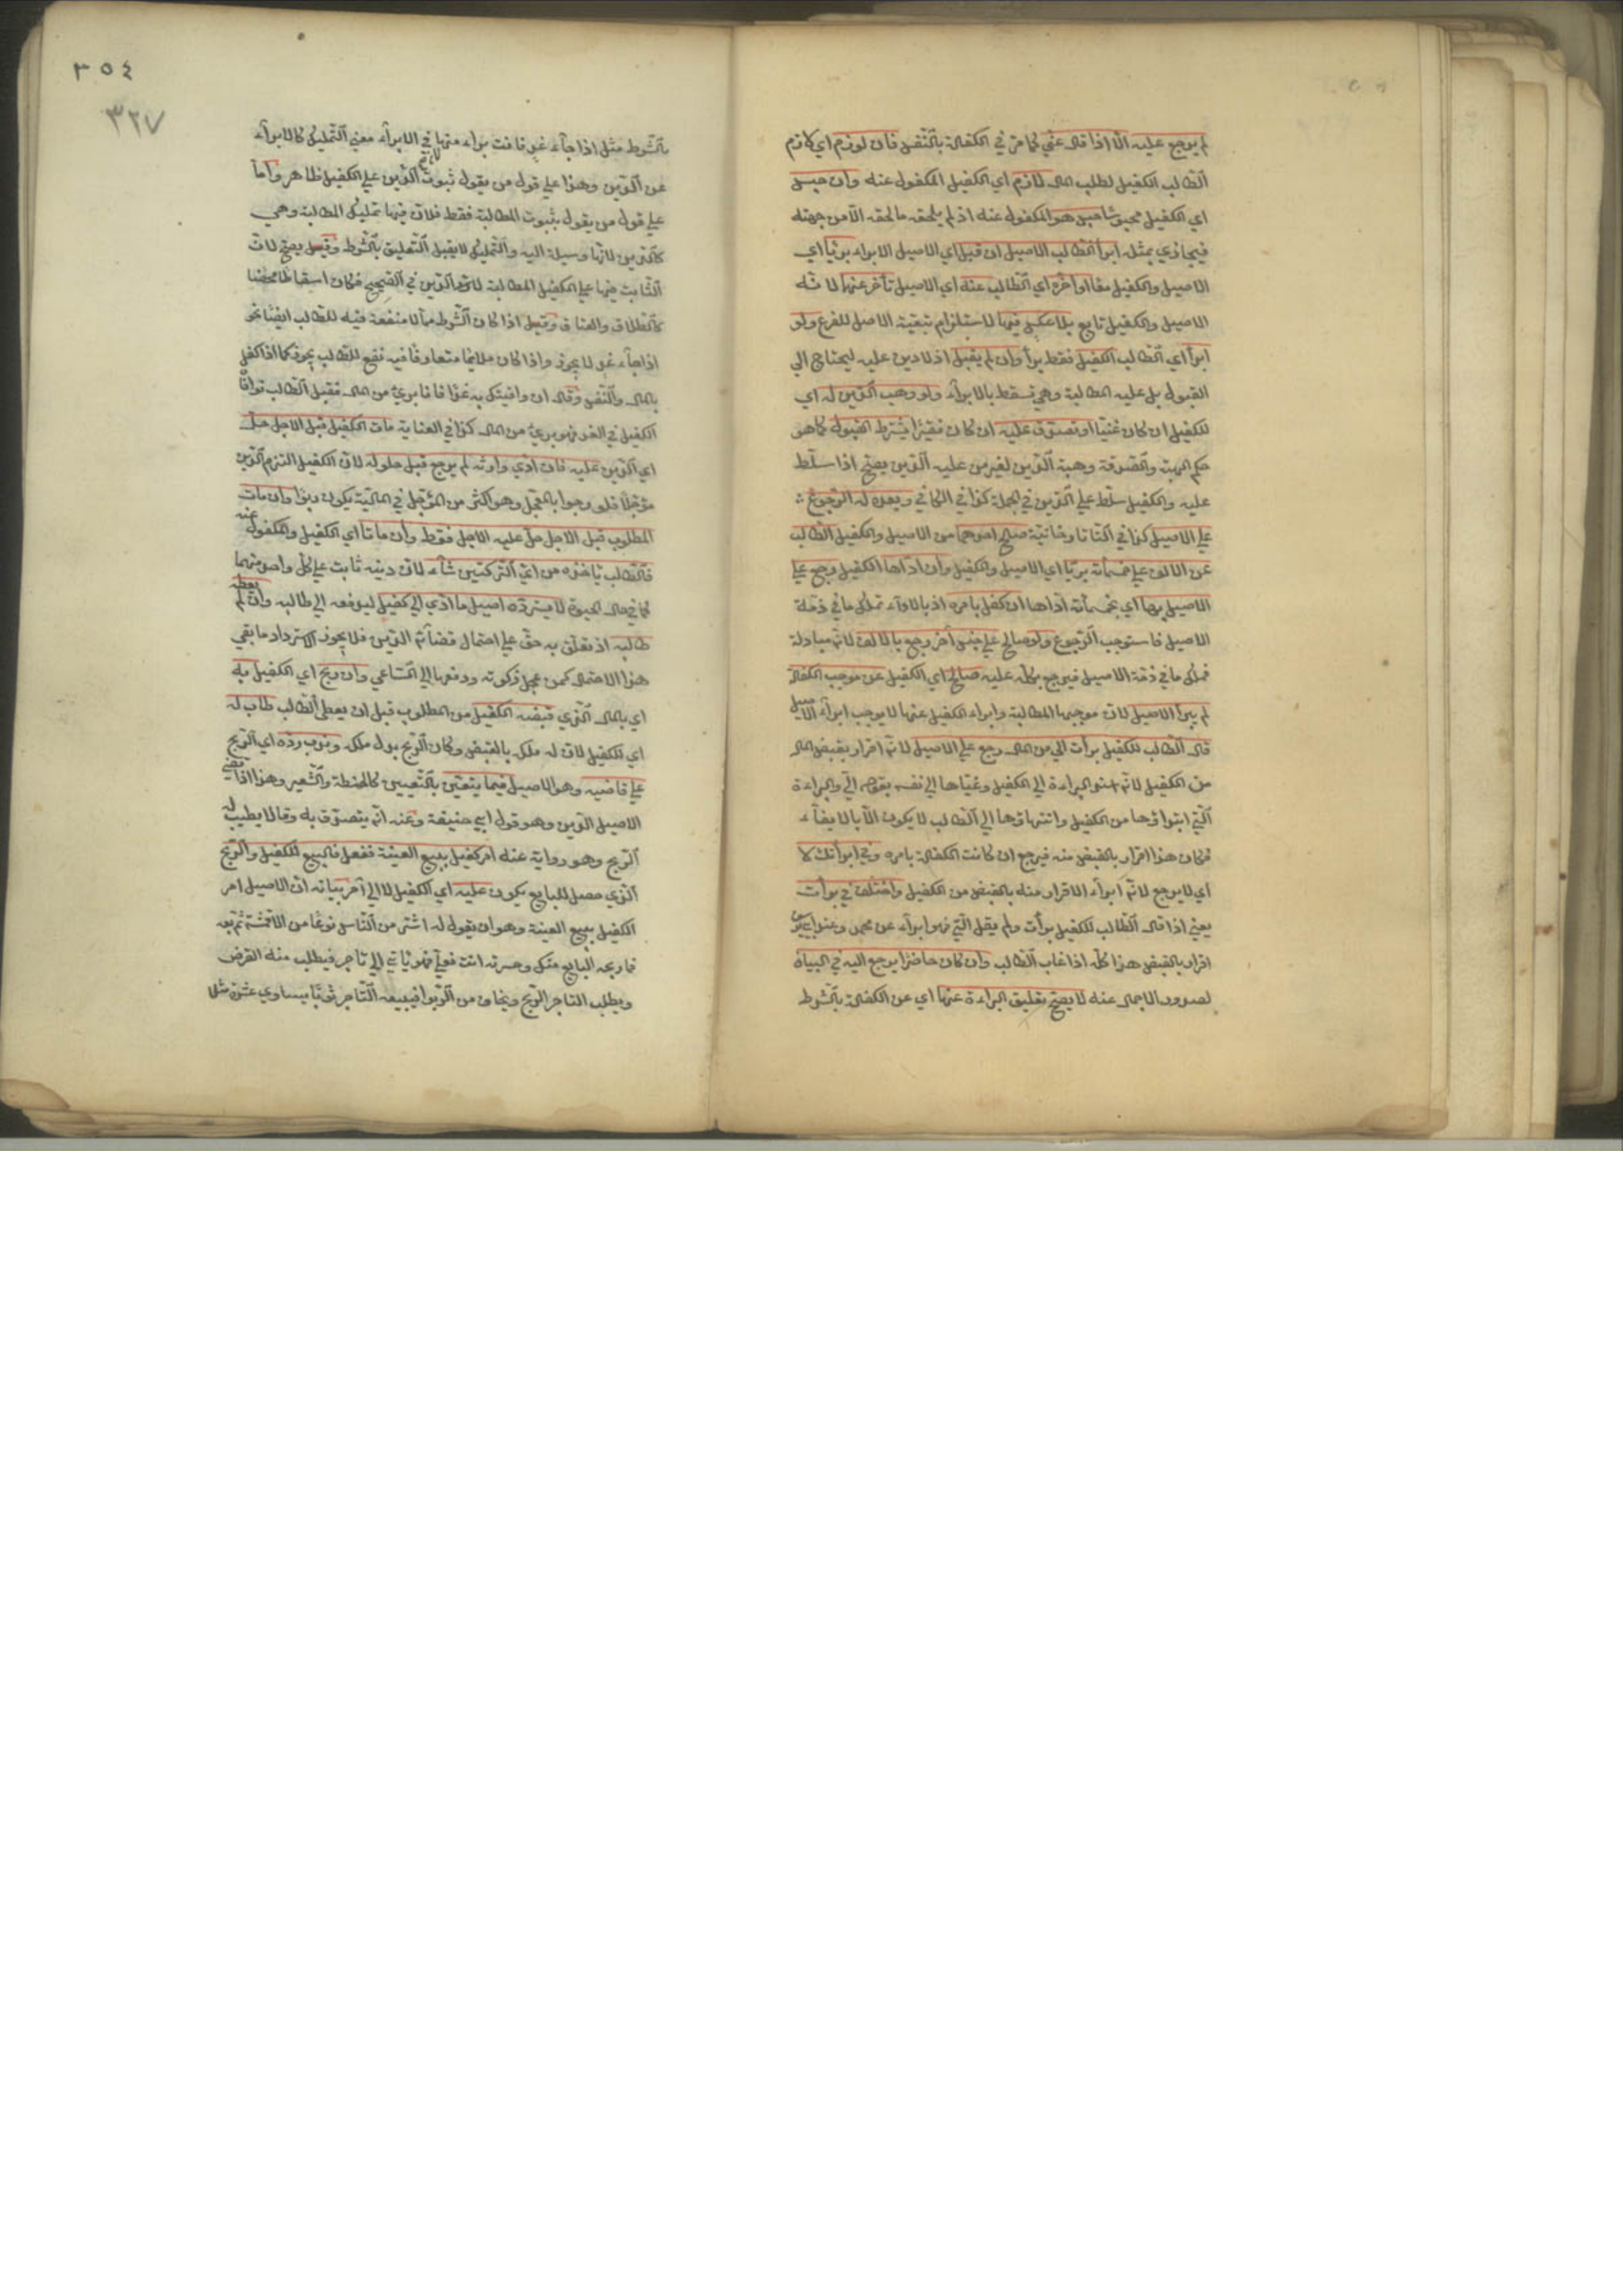 لم يرجع عليه الا اذا قال عني كما مر في الكفالة بالنفس فان لوزم اي لازم
الطالب الكفيل لطلب المال لازم اي الكفيل المكفول عنه وان حبس
اي الكفيل حبس هو المكفول عنه اذ لم يلحقه ما لحقه الا من جهته
فيجازي بمثله ابرأ الطالب الاصيل ان قبل اي الاصيل الابراء برئا اي
الاصيل والكفيل معا او اخره اي الطالب عنه اي الاصيل تأخر عنهما لانه
الاصيل والكفيل تابع بلا عكس فيهما لاستلزام تبعية الاصل للفرع ولو
ابرأ اي الطالب الكفيل فقط برأ وان لم يقبل اذ لا دين عليه ليحتاج الي
القبول بل عليه المطالبة وهي تسقط بالابراء ولو وهب الدين له اي
للكفيل ان كان غنيا او تصدق عليه ان كان فقيرا يشترط القبول كما هو
حكم الهبة والصدقة وهبة الدين لغير من عليه الدين يصح اذا سلط
عليه والكفيل سلط علي الدين في الجملة كذا في الكافي وبعده له الرجوع
علي الاصيل كذا في التتارخانية صالح احدهما من الاصيل والكفيل الطالب
عن الالف علي خمسمائة برئا اي الاصيل والكفيل وان اداها الكفيل رجع علي
الاصيل بها اي بخمسمائة اداها ان كفل بامره اذ بالاداء تملك ما في ذمة
الاصيل فاستوجب الرجوع ولو صالح علي جنس آخر رجع بالالف لانه مبادلة
فملك ما في ذمة الاصيل فيرجع بكله عليه صالح اي الكفيل عن موجب الكفالة
لم يبرأ الاصيل لان موجبها المطالبة وابراء الكفيل عنها لا يوجب ابراء الاصيل
قال الطالب للكفيل برأت الي من المال رجع علي الاصيل لانه اقرار بقبض المال
من الكفيل لانه اسند البراءة الي الكفيل وغياها الي نفسه بقوله الي والبراءة
التي ابتداؤها من الكفيل وانتهاؤها الي الطالب لا يكون الا بالايفاء
فكان هذا اقرار بالقبض منه فيرجع ان كانت الكفالة بامره وفي ابرأتك لا
اي لا يرجع لانه ابراء لا اقرار منه بالقبض من الكفيل واختلف في برأت
يعني اذا قال الطالب للكفيل برأت ولم يقل الي فهو ابراء عن محمد وعند ابي يوسف
اقرار بالقبض هذا كله اذا غاب الطالب وان كان حاضرا يرجع اليه في البيان
لصدور الاجمال عنه لا يصح تعليق البراءة عنها اي عن الكفالة بالشرط
٣٥٤
٣٢٧
بالشرط مثل اذا جاء غد فانت براء منها لان في الابراء معني التمليك كالابراء
عن الدين وهذا علي قول من يقول ثبوت الدين علي الكفيل ظاهر واما
علي قول من يقول بثبوت المطالبة فقط فلان فيها تمليك المطالبة وهي
كالدين لانها وسيلة اليه والتمليك لا يقبل التعليق بالشرط وقيل يصح لان
الثابت فيها علي الكفيل المطالبة لا الدين في الصحيح فكان اسقاطا محضا
كالطلاق والعتاق وقيل اذا كان الشرط مما لا منفعة فيه للطالب ايضا نحو
اذا جاء غد لا يجوز واذا كان ملايما متعارفا فيه نفع للطالب يجوز كما اذا كفل
بالمال والنفس وقال ان وافيتك به غدا فانا بريء من المال فقبل الطالب فوافا
الكفيل في الغد فهو بريء من المال كذا في العناية مات الكفيل قبل الاجل حل
اي الدين عليه فان ادي وارثه لم يرجع قبل حلوله لان الكفيل التزم الدين
مؤجلا فلو رجوا بالمعجل وهو اكثر من المؤجل في المالية يكون ربوا وان مات
المطلوب قبل الاجل حل عليه الاجل فقط وان ماتا اي الكفيل والمكفول عنه
فالطالب ياخذه من اي التركتين شاء لان دينه ثابت علي كل واحد منهما
كما في حال الحيوة لا يسترد اصيل ما ادي الي كفيل ليدفعه الي طالبه وان لم يعطه
طالبه اذ تعلق به حق علي احتمال قضائه الدين فلا يجوز الاسترداد ما بقي
هذا الاحتمال كمن عجل زكوته ودفعها الي الساعي وان ربح اي الكفيل به
اي بالمال الذي قبضه الكفيل من المطلوب قبل ان يعطي الطالب طاب له
اي للكفيل لان له ملكه بالقبض وكان الربح بدل ملكه وندب رده اي الربح
علي قاضيه وهو الاصيل فيما يتعين بالتعيين كالحنطة والشعير وهذا اذا قضي
الاصيل الدين وهو قول ابي حنيفة وعنه انه يتصدق به وقالا يطيب له
الربح وهو رواية عنه امر كفيله ببيع العينة ففعل فالبيع للكفيل والربح
الذي حصل للبايع يكون عليه اي الكفيل لا الي آخر بيانه ان الاصيل امر
الكفيل ببيع العينة وهو ان يقول له اشتر من الناس نوعا من الاقمشة ثم بعه
فما ربحه البايع منك وخسرته انت فعلي فهو ياتي الي تاجر فيطلب منه القرض
ويطلب التاجر الربح ويخاف من الربوا فيبيعه التاجر ثوبا يساوي عشرة مثلا